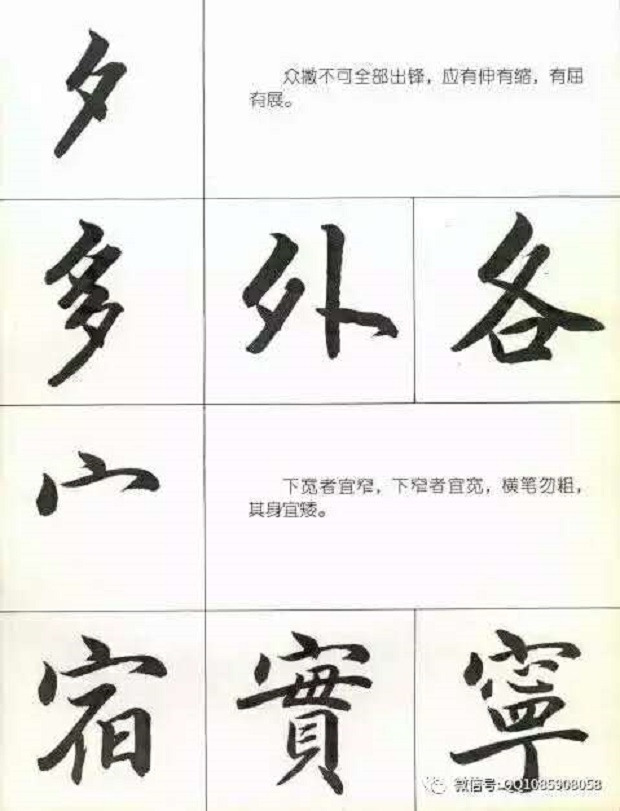 夕
众撇不可全部出锋，应有伸有缩，有屈
有展。
多 外 各
宀
下宽者宜窄，下窄者宜宽，横笔勿粗，
其身宜矮。
宿 實 寧
微信号:QQ1085908058